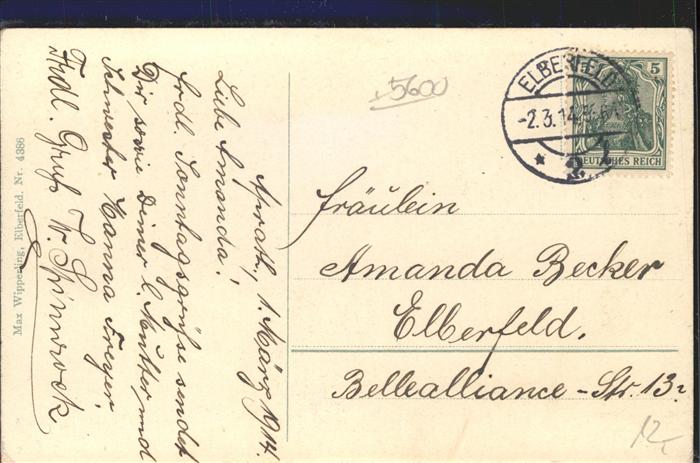 Aprath, 1. März 1914.
Liebe Amanda!
Frdl. Sonntagsgrüße sendet
Dir sowie Deiner l. Mutter und
Schwester Hanna
Frdl. Gruß
Max Wipperling, Elberfeld. Nr. 4386
5600
ELBERFELD
-2.3.14.
* 2.
5
DEUTSCHES REICH
Fräulein
Amanda Becker
Elberfeld.
Bellealliance-Str. 13
12,-